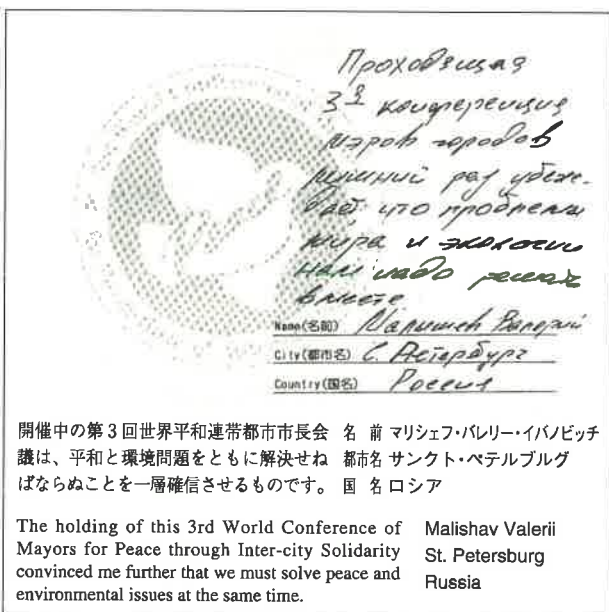 Проходящая
3я конференция
мэров городов
лишний раз убеж-
дает что проблемы
мира и экологии
нам надо решать
вместе
Name(名前) Малышев Валерий
City(都市名) С. Петербург
Country(国名) Россия
開催中の第3回世界平和連帯都市市長会
議は、平和と環境問題をともに解決せね
ばならぬことを一層確信させるものです。
名 前 マリシェフ・バレリー・イバノビッチ
都市名 サンクト・ペテルブルグ
国 名 ロシア
The holding of this 3rd World Conference of
Mayors for Peace through Inter-city Solidarity
convinced me further that we must solve peace and
environmental issues at the same time.
Malishav Valerii
St. Petersburg
Russia